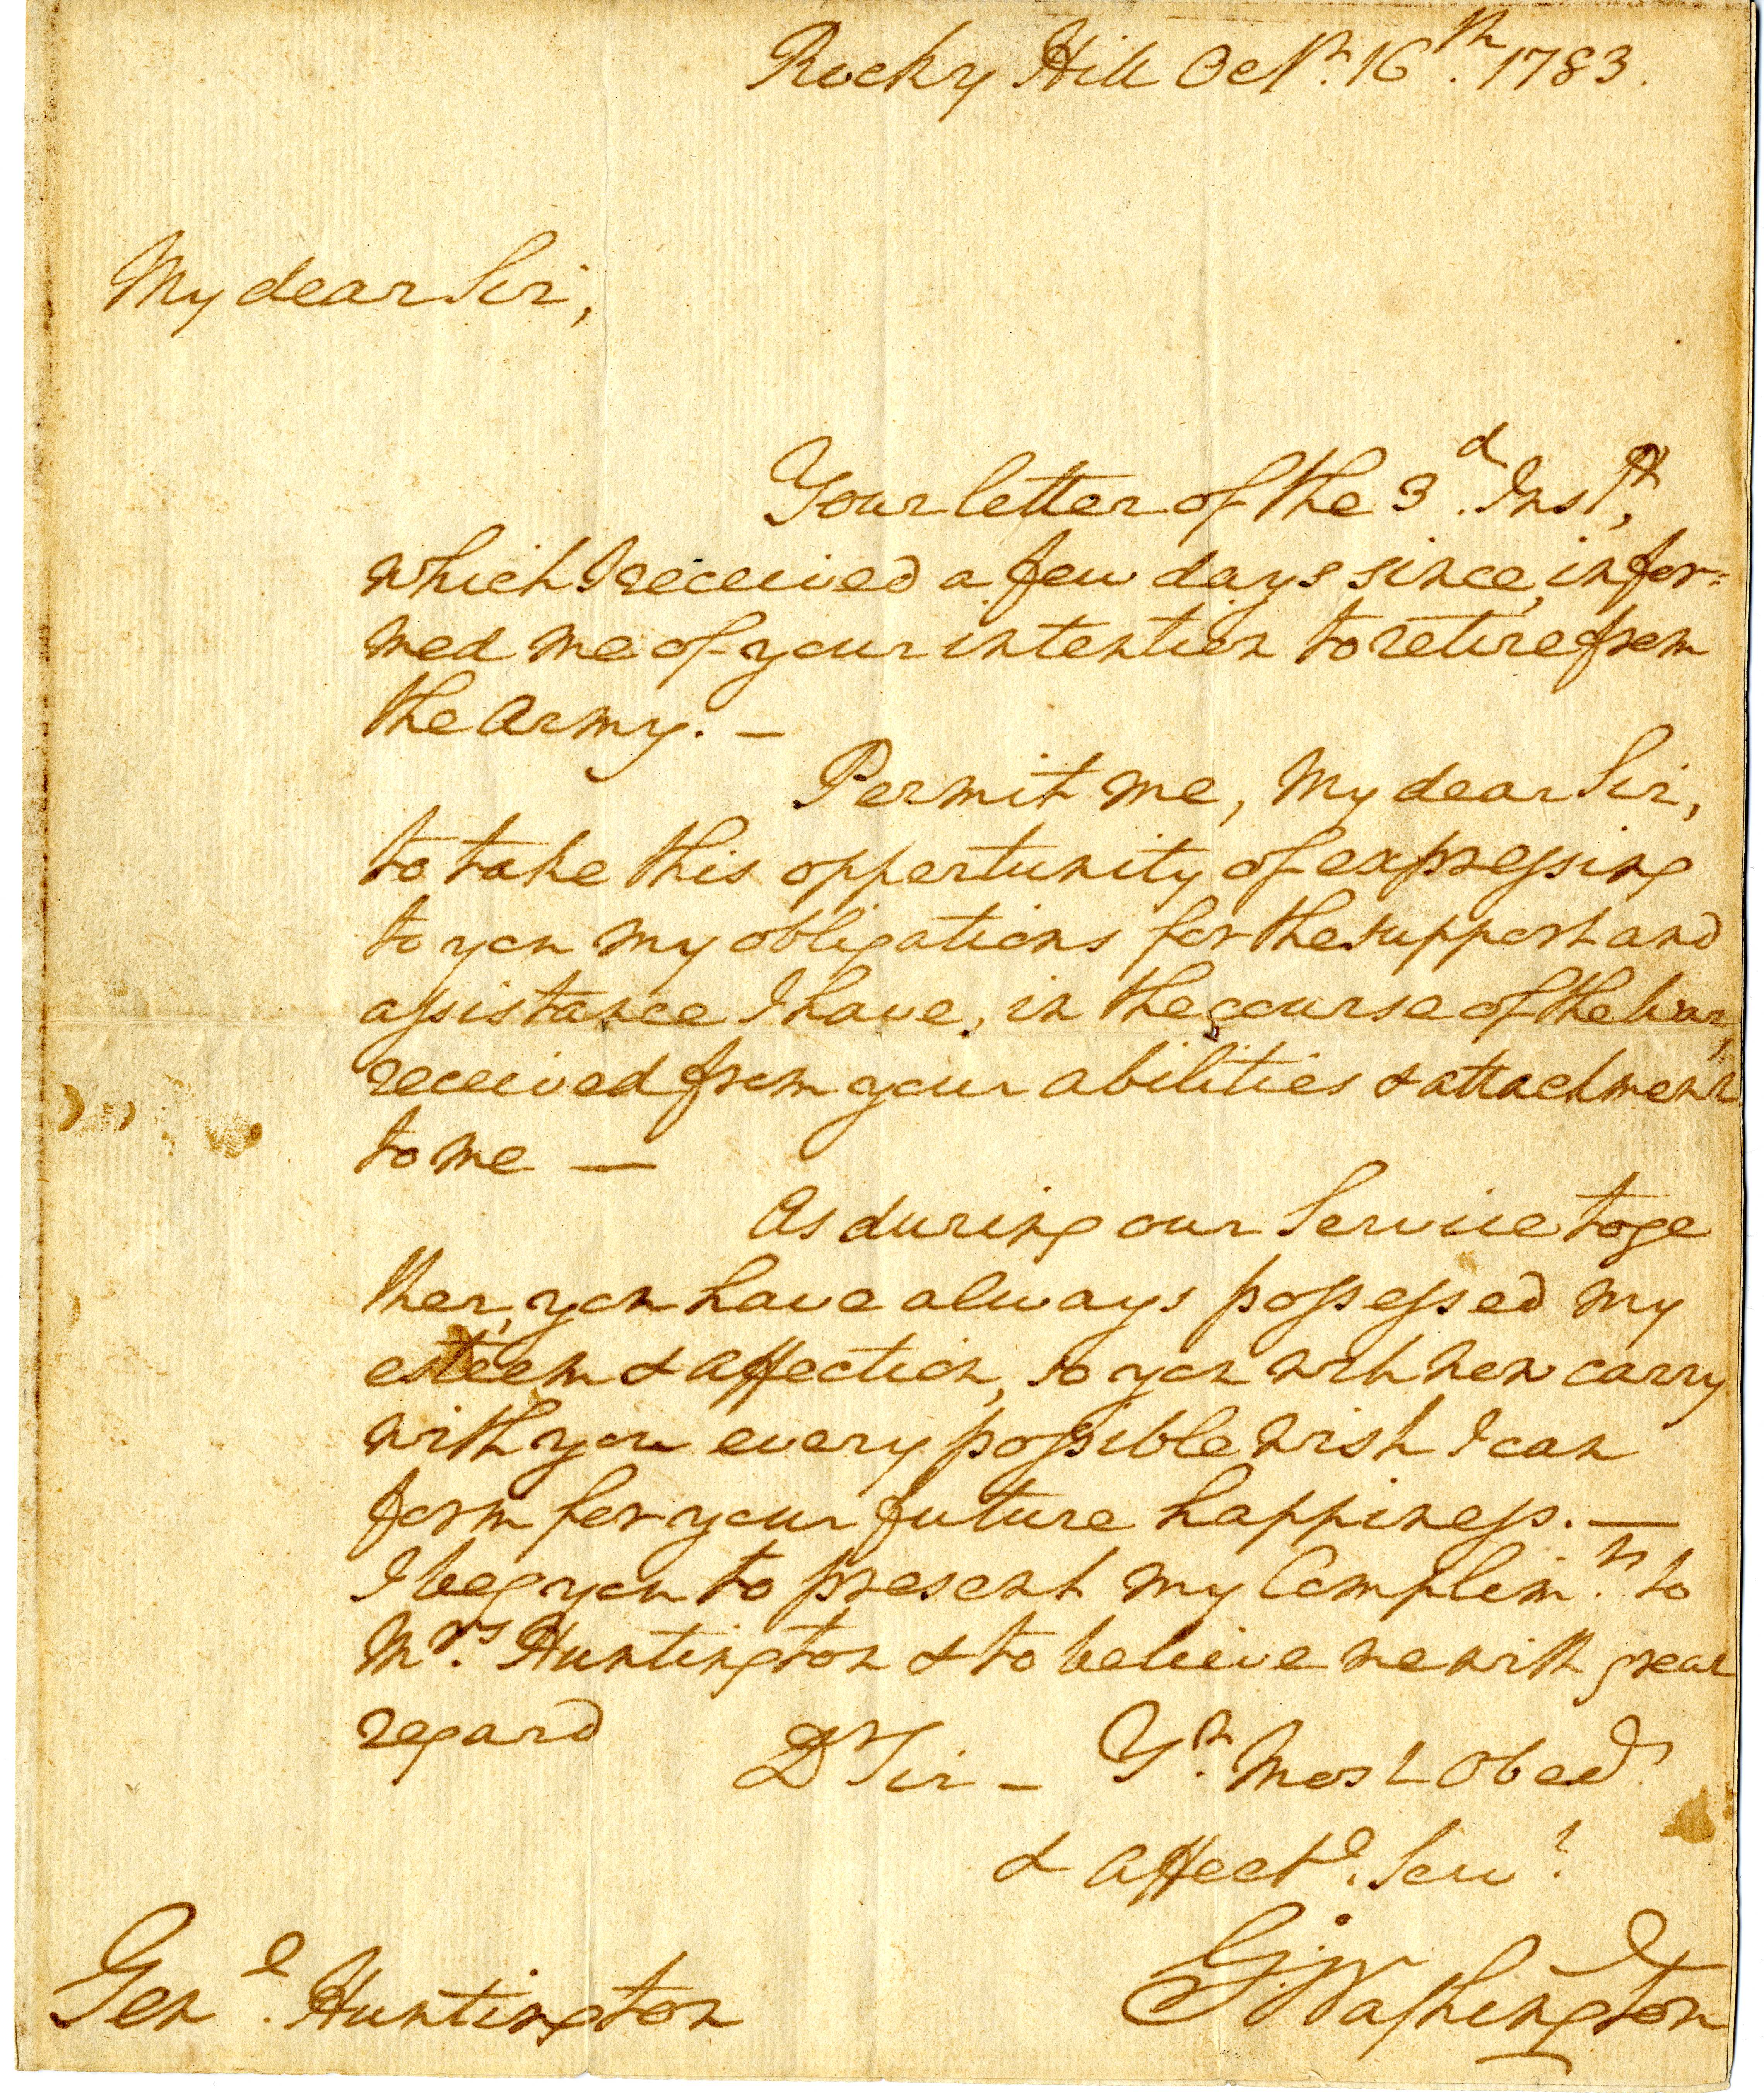 Rocky Hill Octr. 16th. 1783.
My dear Sir,
Your letter of the 3d. Instt,
which I received a few days since, infor=
med me of your intention to retire from
the Army. —
Permit me, My dear Sir,
to take this oppertunity of expressing
to you my obligations for the support and
assistance I have, in the course of the War,
received from your abilities & attachment
to me —
As during our Service toge
ther, you have always possessed my
esteem & affection, so you will now carry
with you every possible wish I can
form for your future happiness. —
I beg you to present my Complimts. to
Mrs. Huntington & to believe me with great
regard
Dr Sir — Yr. Most Obedt.
& Affecte. Servt.
Go: Washington
Genl. Huntington